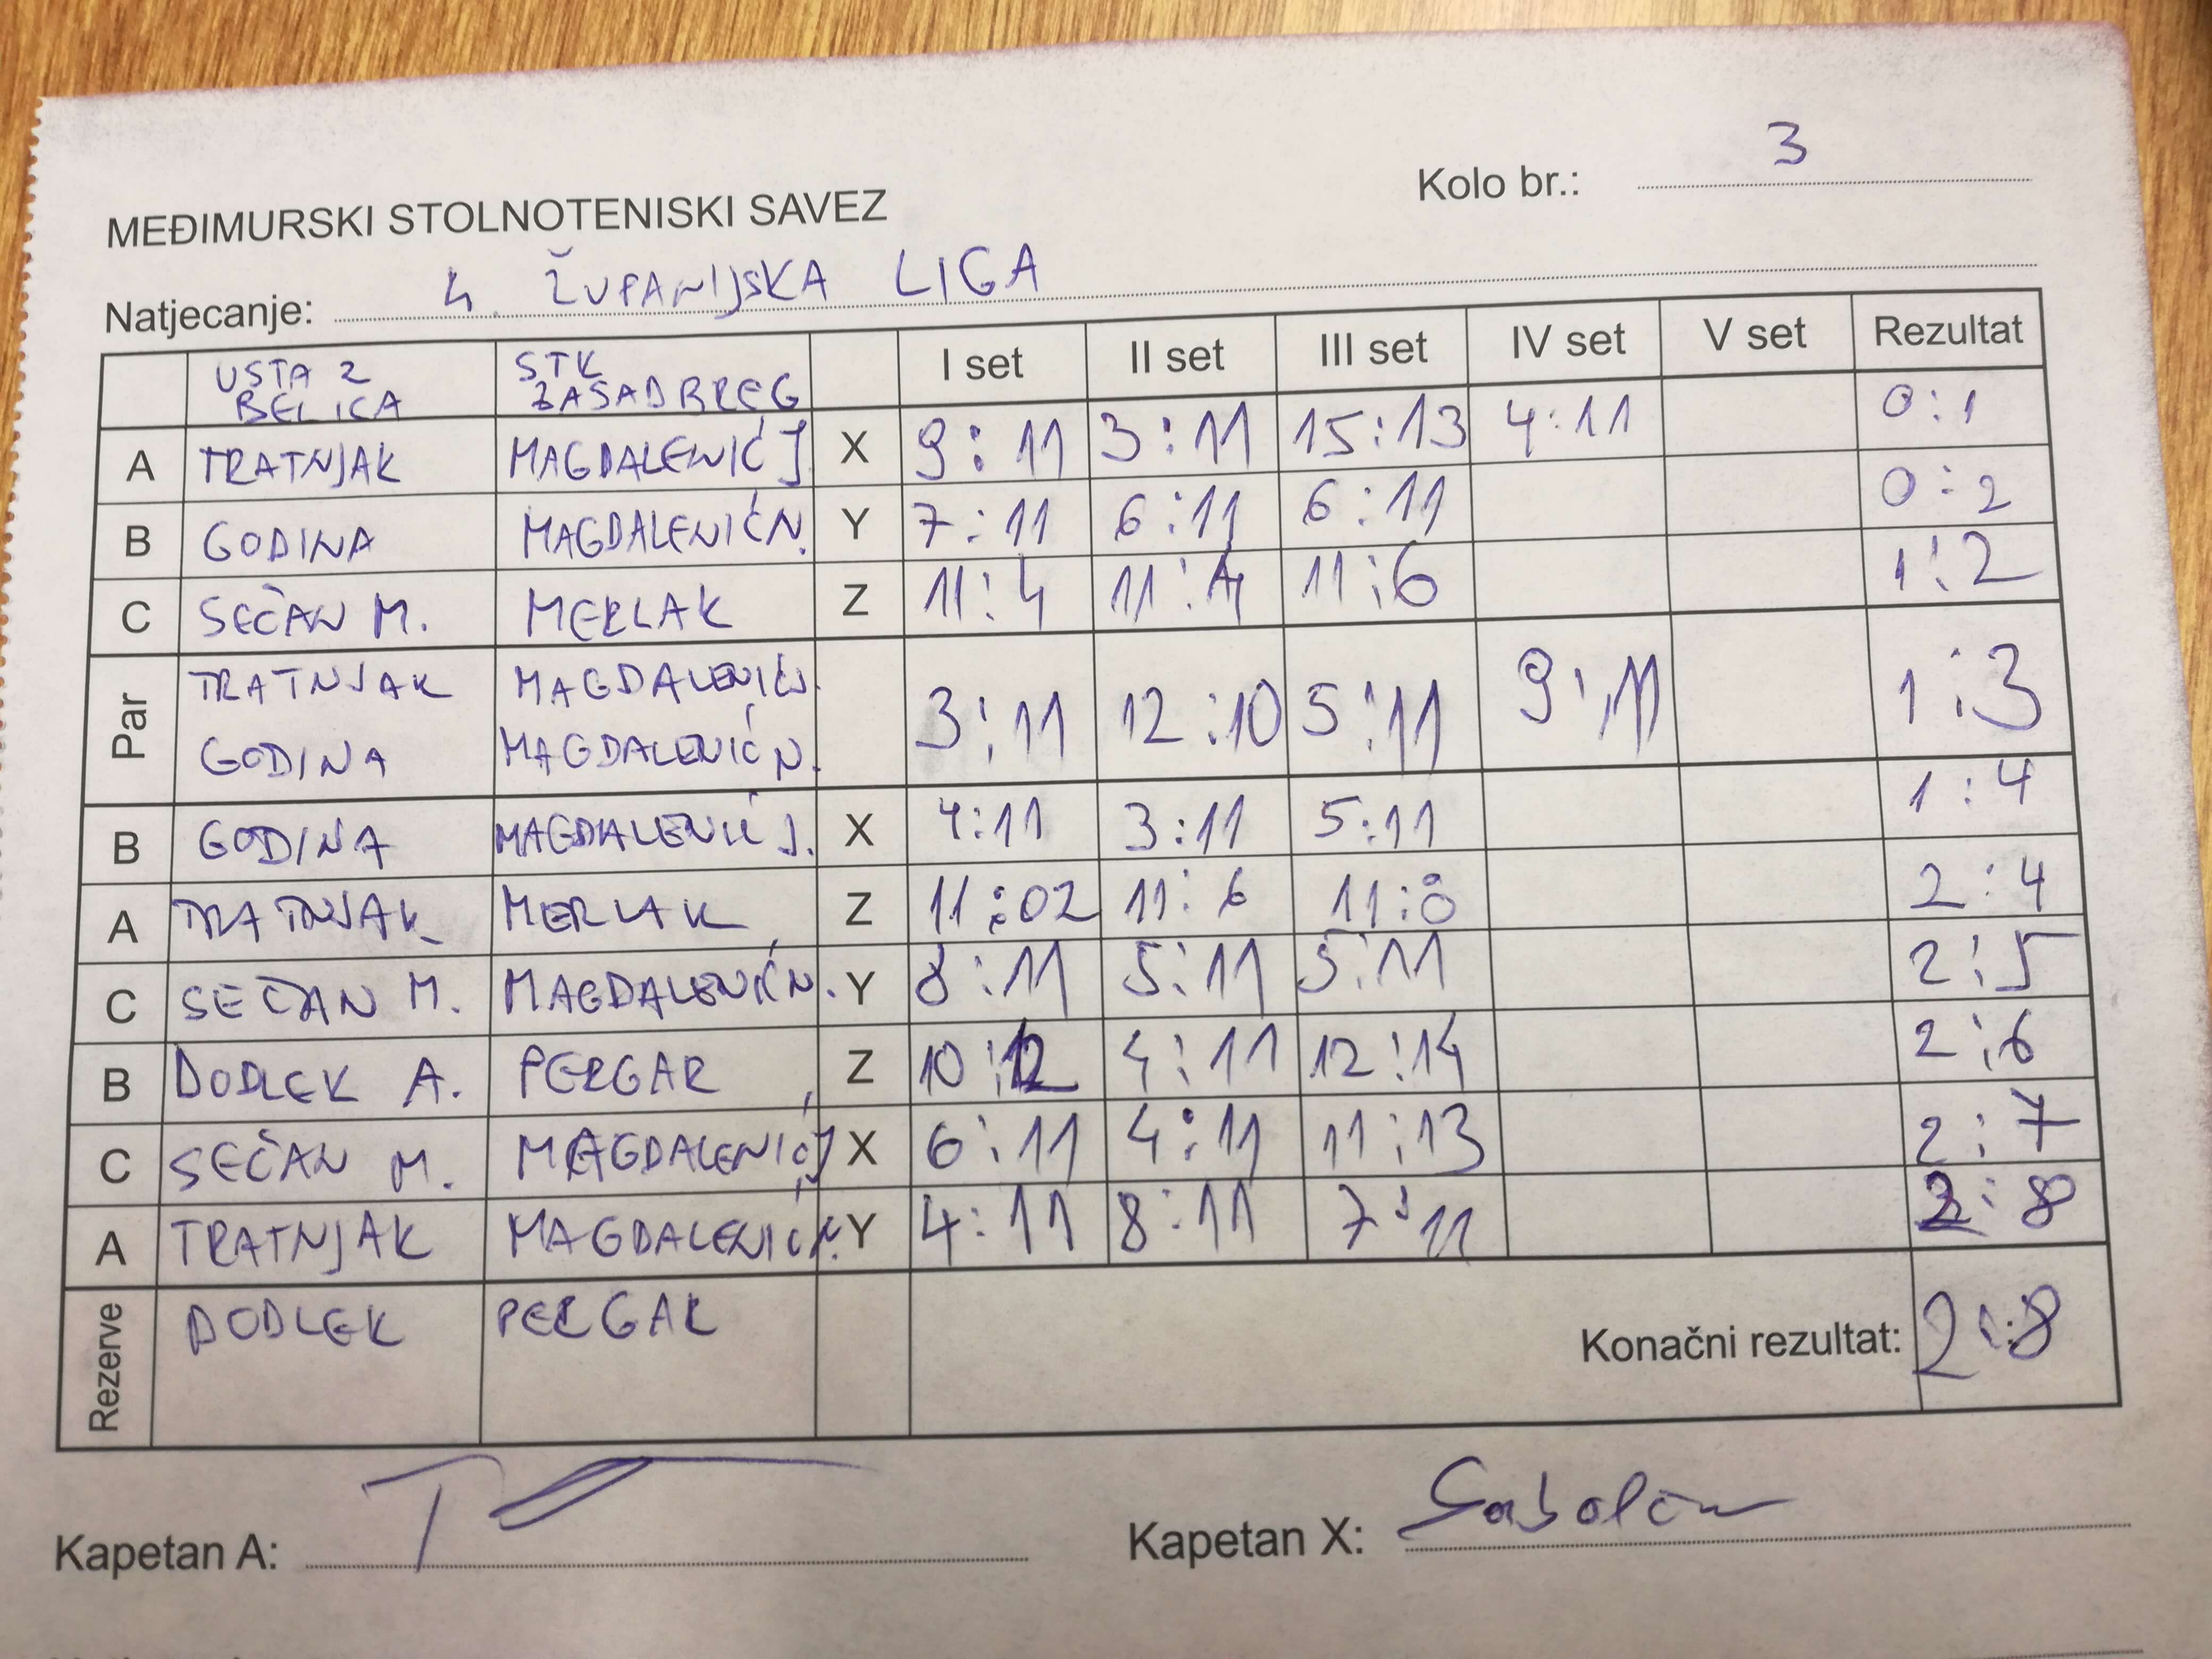 Kolo br.: 3
MEĐIMURSKI STOLNOTENISKI SAVEZ
Natjecanje: 4. ŽUPANIJSKA LIGA
USTA 2 BELICA STK ZASADBREG I set II set III set IV set V set Rezultat
A TRATNJAK MAGDALENIĆ J X 9:11 3:11 15:13 4:11 0:1
B GODINA MAGDALENIĆ N. Y 7:11 6:11 6:11 0:2
C SEČAN M. MERLAK Z 11:4 11:4 11:6 1:2
Par TRATNJAK MAGDALENIĆ J. 3:11 12:10 5:11 9:11 1:3
GODINA MAGDALENIĆ N.
B GODINA MAGDALENIĆ J. X 4:11 3:11 5:11 1:4
A TRATNJAK MERLAK Z 11:02 11:6 11:8 2:4
C SEČAN M. MAGDALENIĆ N. Y 8:11 5:11 5:11 2:5
B DODLEK A. PERGAR Z 10:12 4:11 12:14 2:6
C SEČAN M. MAGDALENIĆ J X 6:11 4:11 11:13 2:7
A TRATNJAK MAGDALENIĆ N. Y 4:11 8:11 7:11 2:8
Rezerve DODLEK PERGAR Konačni rezultat: 2:8
Kapetan A: Kapetan X: